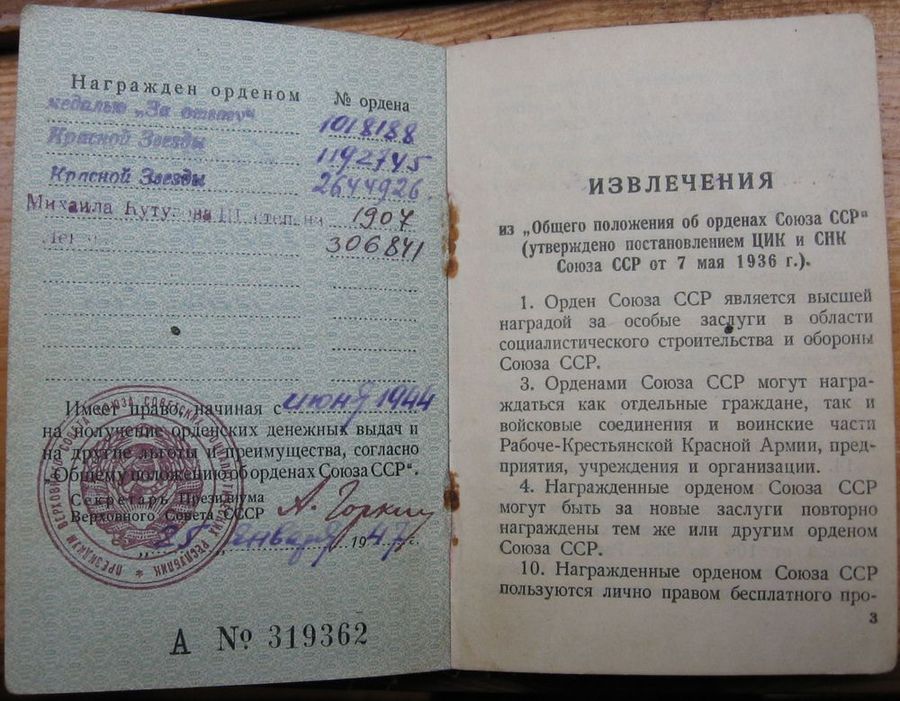 Награжден орденом № ордена
медалью „За отвагу“ 1018188
Красной Звезды 1192745
Красной Звезды 2644926
Михаила Кутузова III степени 1907
306841
Имеет право, начиная с июня 1944
на получение орденских денежных выдач и
на другие льготы и преимущества, согласно
„Общему положению об орденах Союза ССР“.
Секретарь Президиума
Верховного Совета СССР А. Горкин
25 января 1947 г.
А № 319362
ИЗВЛЕЧЕНИЯ
из „Общего положения об орденах Союза ССР“
(утверждено постановлением ЦИК и СНК
Союза ССР от 7 мая 1936 г.).
1. Орден Союза ССР является высшей
наградой за особые заслуги в области
социалистического строительства и обороны
Союза ССР.
3. Орденами Союза ССР могут награ-
ждаться как отдельные граждане, так и
войсковые соединения и воинские части
Рабоче-Крестьянской Красной Армии, пред-
приятия, учреждения и организации.
4. Награжденные орденом Союза ССР
могут быть за новые заслуги повторно
награждены тем же или другим орденом
Союза ССР.
10. Награжденные орденом Союза ССР
пользуются лично правом бесплатного про-
3